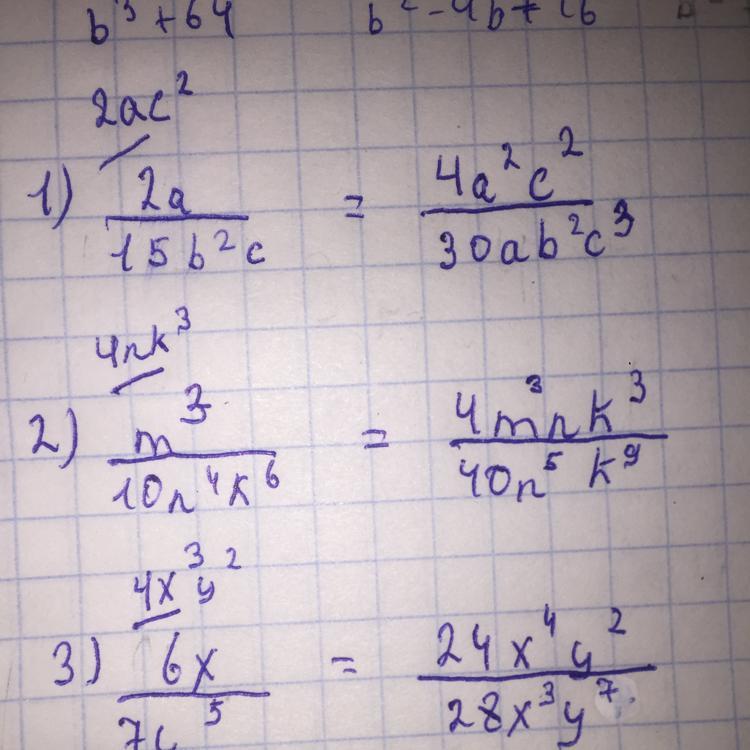 b³ + 64 b² - 4b + 16
2ac²
1) 2a / 15b²c = 4a²c² / 30ab²c³
4nk³
2) m³ / 10n⁴k⁶ = 4m³nk³ / 40n⁵k⁹
4x³y²
3) 6x / 7y⁵ = 24x⁴y² / 28x³y⁷